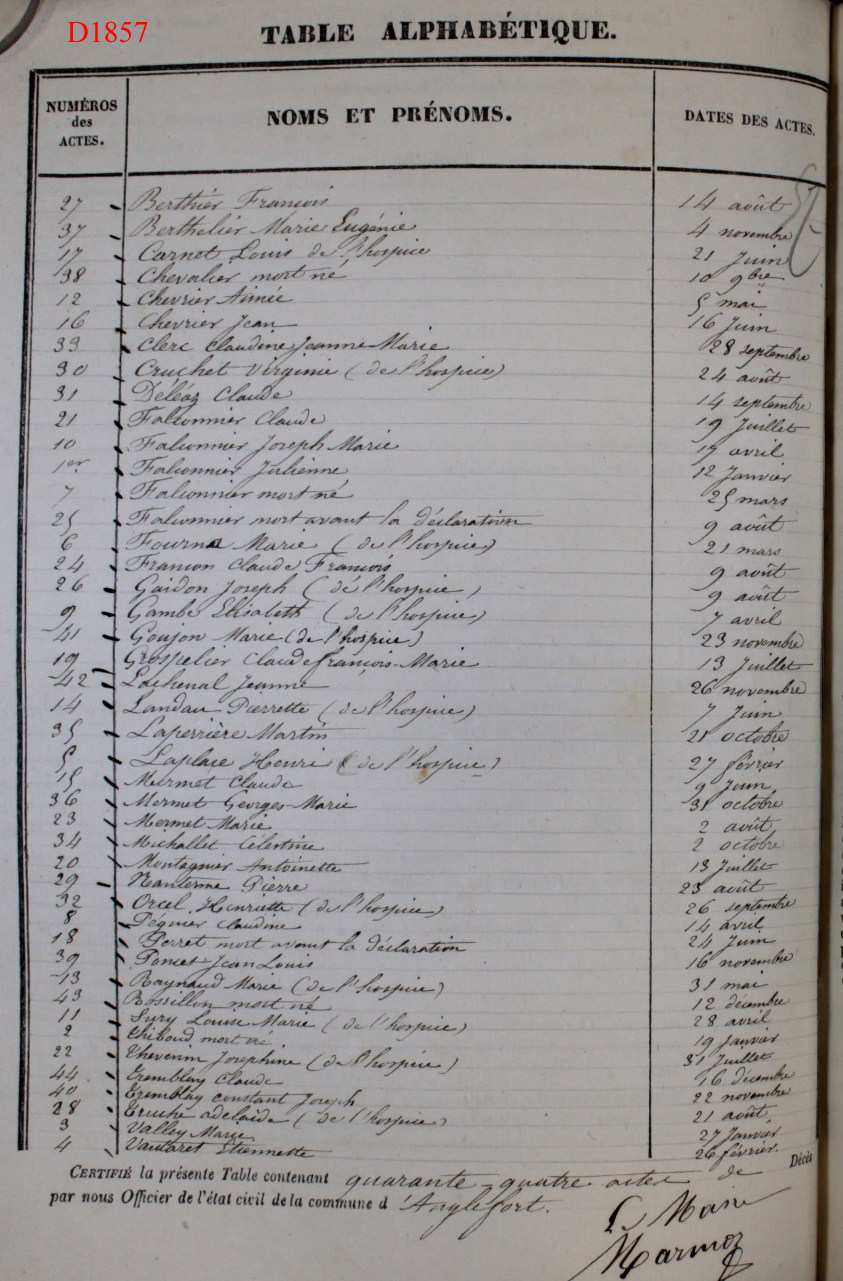 D1857
TABLE ALPHABÉTIQUE.
NUMÉROS des ACTES. NOMS ET PRÉNOMS. DATES DES ACTES.
27 Berthier François 14 août
37 Berthelier Marie Eugénie 4 novembre
17 Carnet Louis de l'hospice 21 Juin
38 Chevalier mort né 10 9bre
12 Chevrier Aimée 5 mai
16 Chevrier Jean 16 Juin
33 Clerc Claudine Jeanne Marie 28 septembre
30 Cruchet Virginie (de l'hospice) 24 août
31 Déléaz Claude 14 septembre
21 Falconnier Claude 19 Juillet
10 Falconnier Joseph Marie 17 avril
1er Falconnier Julienne 12 Janvier
7 Falconnier mort né 25 mars
25 Falconnier mort avant la déclaration 9 août
6 Marie (de l'hospice) 21 mars
24 Francon Claude François 9 août
26 Gaidon Joseph (de l'hospice) 9 août
9 Gambe Elisabeth (de l'hospice) 7 avril
41 Goujon Marie (de l'hospice) 23 novembre
19 Grospelier Claude françois-Marie 13 Juillet
42 Lachenal Jeanne 26 novembre
14 Landau Pierrette (de l'hospice) 7 Juin
35 Laperrière Martin 21 octobre
5 Laplace Henri (de l'hospice) 27 février
15 Mermet Claude 9 Juin
36 Mermet Georges-Marie 31 octobre
23 Mermet Marie 2 août
34 Michallet Célestine 2 octobre
20 Montagnier Antoinette 13 Juillet
29 Nanterme Pierre 23 août
32 Orcel Henriette (de l'hospice) 26 septembre
8 Claudine 14 avril
18 Perret mort avant la déclaration 24 Juin
39 Poncet Jean Louis 16 novembre
13 Raynaud Marie (de l'hospice) 31 mai
43 Rossillon mort né 12 décembre
11 Sury Louise Marie (de l'hospice) 28 avril
2 Thiboud mort né 19 Janvier
22 Thevenin Josephine (de l'hospice) 31 Juillet
44 Tremblay Claude 16 décembre
40 Tremblay constant Joseph 22 novembre
28 Truche adelaïde (de l'hospice) 21 août
3 Valley Marie 27 Janvier
4 Vautaret Etiennette 26 février
CERTIFIÉ la présente Table contenant quarante-quatre actes de Décès
par nous Officier de l'état civil de la commune d'Anglefort.
Le Maire
Marmoz